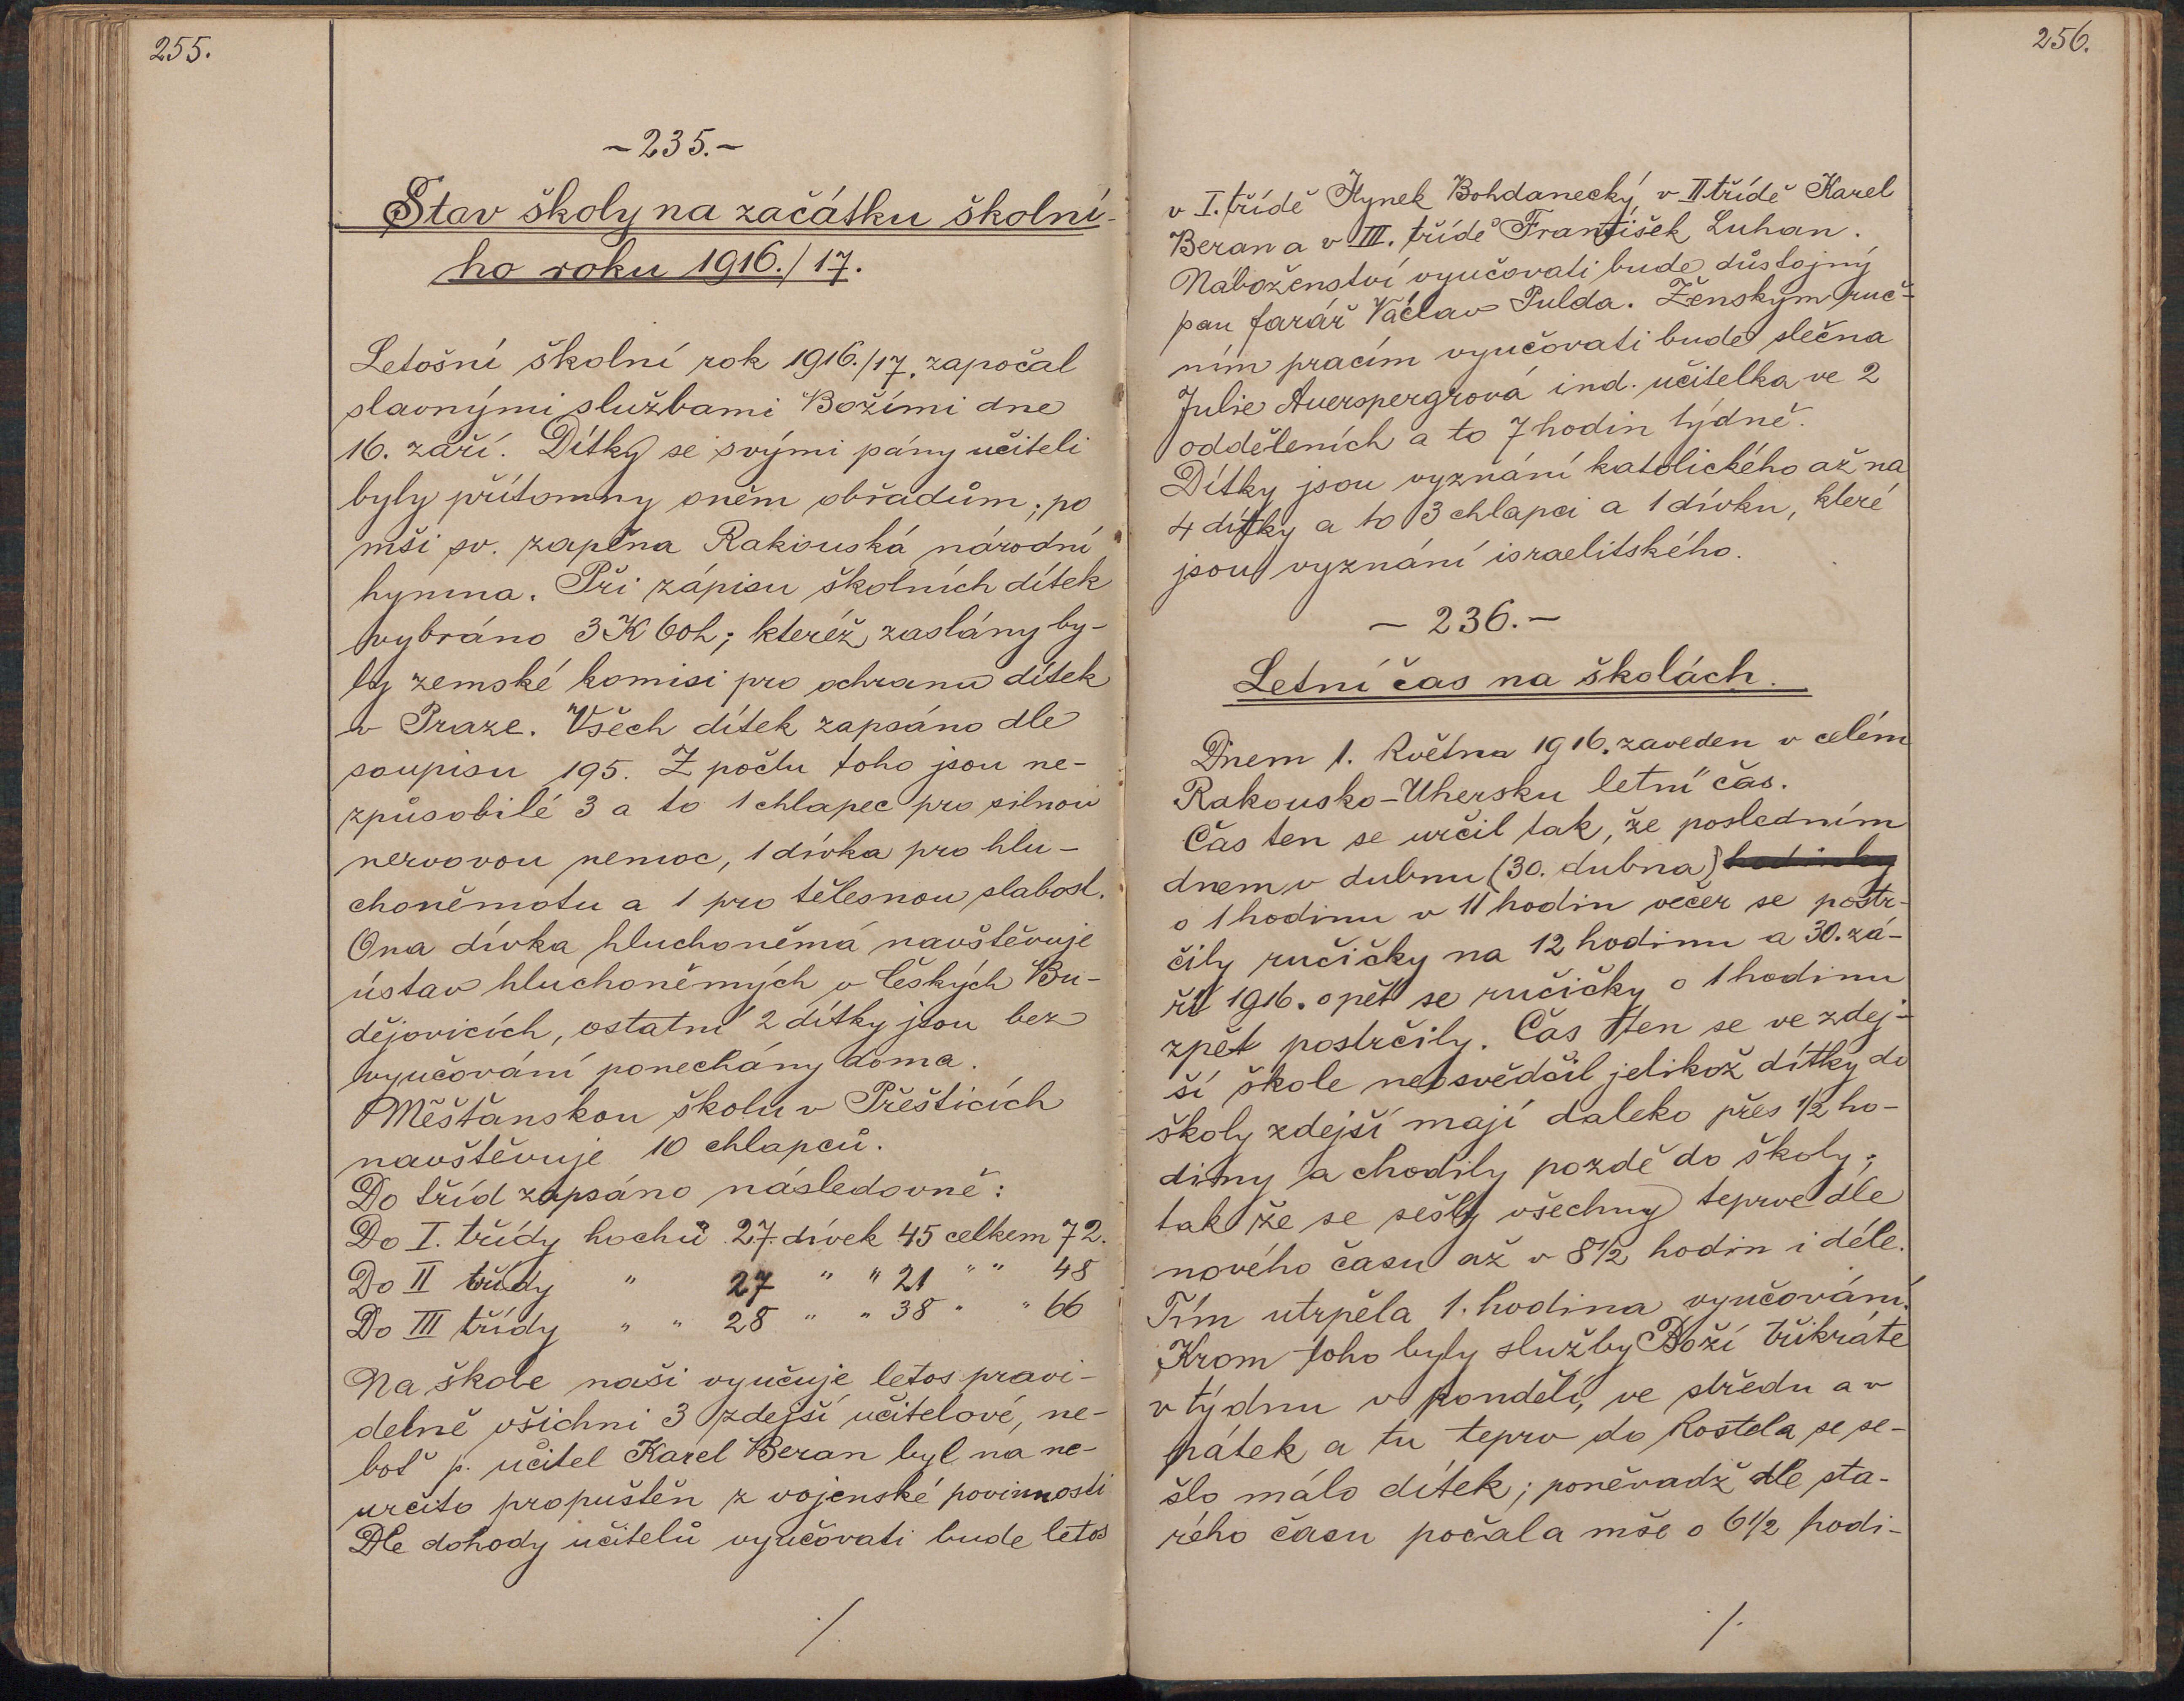 255.
-235.-
Stav školy na začátku školní-
ho roku 1916./17.
Letošní školní rok 1916./17. započal
slavnými službami Božími dne
16. září. Dítky se svými pány učiteli
byly přítomny oněm obřadům; po
mši sv. zapěna Rakouská národní
hymna. Při zápisu školních dítek
vybráno 3 K 60 h; kteréž zaslány by-
ly zemské komisi pro ochranu dítek
v Praze. Všech dítek zapsáno dle
soupisu 195. Z počtu toho jsou ne-
způsobilé 3 a to 1 chlapec pro silnou
nervovou nemoc, 1 dívka pro hlu-
choněmotu a 1 pro tělesnou slabost.
Ona dívka hluchoněmá navštěvuje
ústav hluchoněmých v Českých Bu-
dějovicích, ostatní 2 dítky jsou bez
vyučování ponechány doma.
Měšťanskou školu v Přešticích
navštěvuje 10 chlapců.
Do tříd zapsáno následovně:
Do I. třídy hochů 27. dívek 45 celkem 72.
Do II třídy " 27 " " 21 " " 48
Do III třídy " " 28 " " 38 " " 66
Na škole naši vyučuje letos pravi-
delně všichni 3 zdejší učitelové, ne-
boť p. učitel Karel Beran byl na ne-
určito propuštěn z vojenské povinnosti
Dle dohody učitelů vyučovati bude letos
./.
256.
v I. třídě Hynek Bohdanecký, v II třídě Karel
Beran a v III. třídě František Luhan.
Náboženství vyučovati bude důstojný
pan farář Václav Pulda. Ženským ruč-
ním pracím vyučovati bude slečna
Julie Auerspergrová ind. učitelka ve 2
odděleních a to 7 hodin týdně.
Dítky jsou vyznání katolického až na
4 dítky a to 3 chlapci a 1 dívku, které
jsou vyznání israelitského.
- 236.-
Letní čas na školách.
Dnem 1. května 1916. zaveden v celém
Rakousko-Uhersku letní čas.
Čas ten se určil tak, že posledním
dnem v dubnu (30. dubna) hodinky
o 1 hodinu v 11 hodin večer se postr-
čily ručičky na 12 hodinu a 30. zá-
ří 1916. opět se ručičky o 1 hodinu
zpět postrčily. Čas ten se ve zdej-
ší škole neosvědčil jelikož dítky do
školy zdejší mají daleko přes 1/2 ho-
diny a chodily pozdě do školy;
tak že se sešly všechny teprve dle
nového času až v 8 1/2 hodin i déle.
Tím utrpěla 1. hodina vyučování.
Krom toho byly služby Boží třikráte
v týdnu v pondělí, ve středu a v
pátek a tu teprv do kostela se se-
šlo málo dítek; poněvadž dle sta-
rého času počala mše o 6 1/2 hodi-
./.